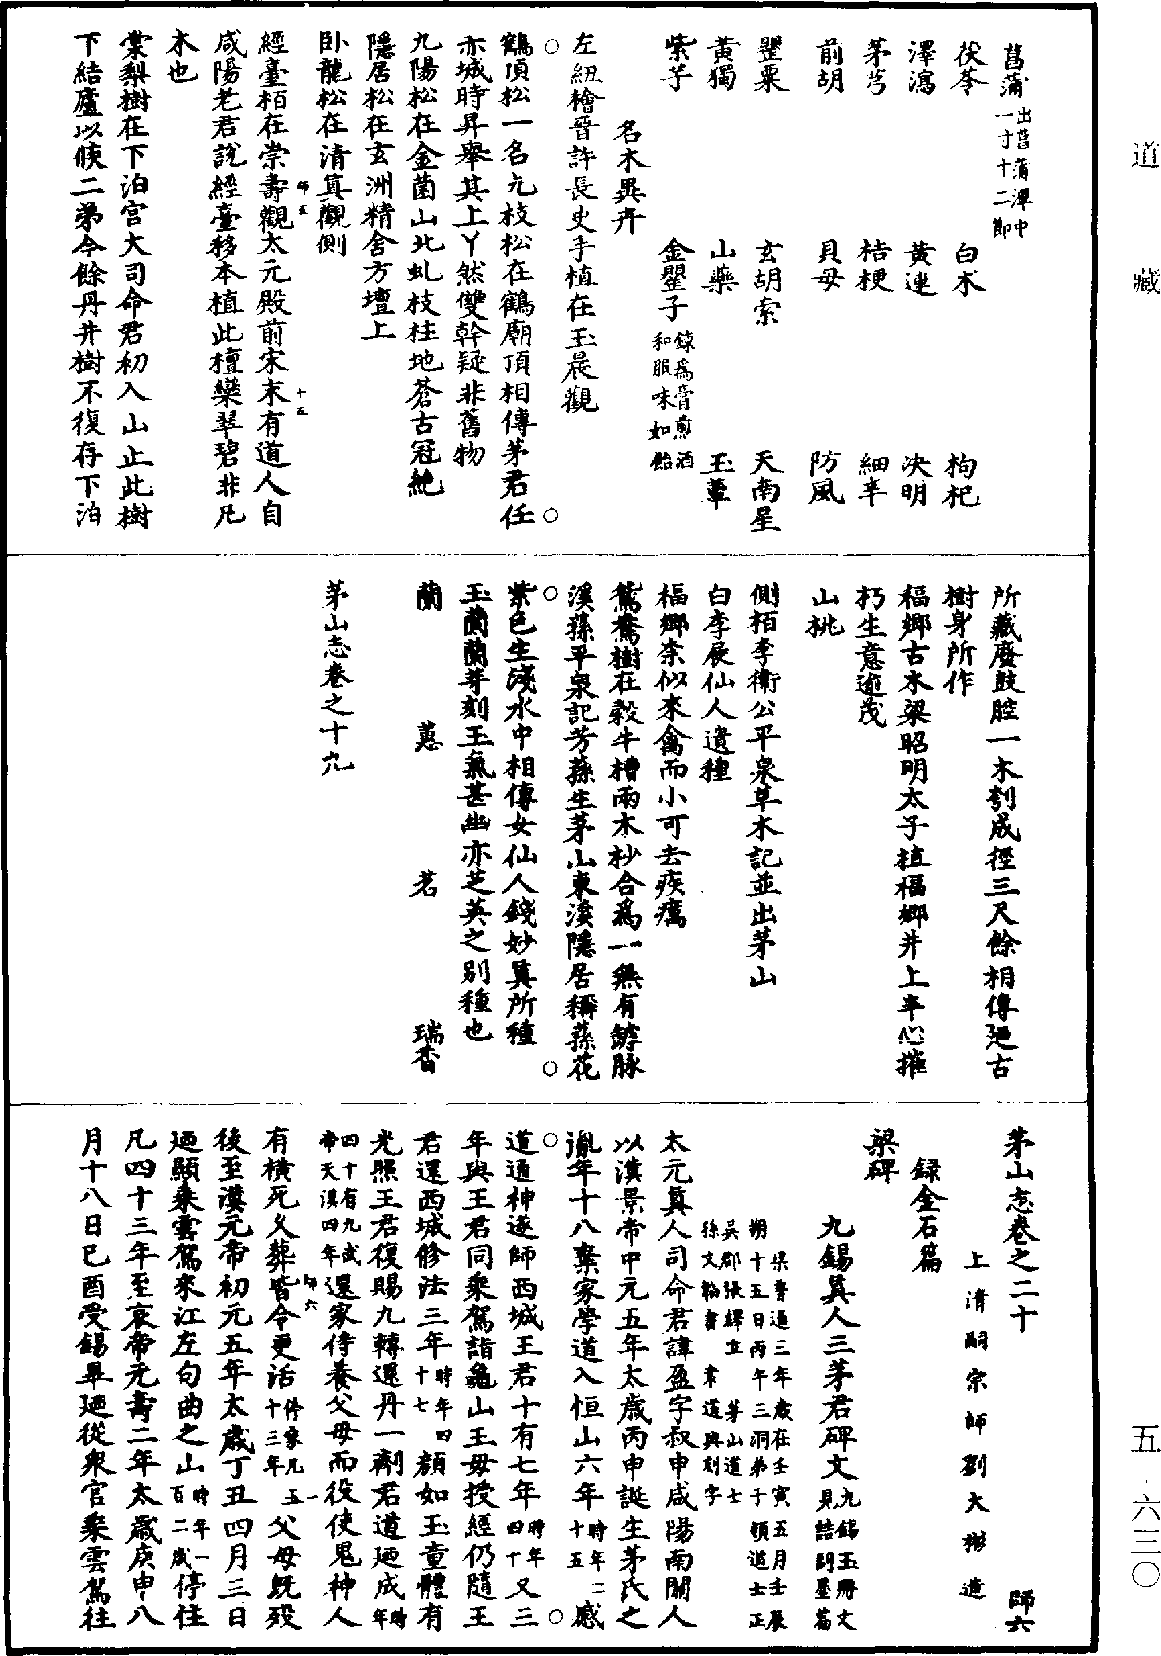 道藏
五·六三〇
菖蒲出菖蒲潭中一寸十二節
茯苓 白朮 枸杞
澤瀉 黃連 决明
茅芎 桔梗 細辛
前胡 貝母 防風
罌粟 玄胡索 天南星
黃獨 山藥 玉蕈
紫芋 金罌子錄為膏煎酒和服味如飴
名木異卉
左紐檜晉許長史手植在玉晨觀
鶴頂松一名九枝松在鶴廟頂相傳茅君任
亦城時昇舉其上丫然雙幹疑非舊物
九陽松在金菌山北虬枝柱地蒼古冠絶
隱居松在玄洲精舍方壇上
卧龍松在清真觀側
經臺栢在崇壽觀太元殿前宋末有道人自
師五
十五
咸陽老君說經臺移本植此檀欒翠碧非凡
木也
棠梨樹在下泊宫大司命君初入山止此樹
下結廬以候二弟今餘丹井樹不復存下泊
所藏廢鼓腔一木刳成徑三尺餘相傳廼古
樹身所作
福鄉古木梁昭明太子植福鄉井上半心摧
朽生意逾茂
山桃
側栢李衛公平泉草木記並出茅山
白李展仙人遺種
福鄉柰似來禽而小可去疾癘
鴛鴦樹在穀牛槽兩木杪合為一無有罅脉
溪蓀平泉記芳蓀生茅山東溪隱居稱蓀花
紫色生淺水中相傳女仙人錢妙真所種
玉蘭蘭芽刻玉氣甚幽亦芝英之别種也
蘭 蕙 茗 瑞香
茅山志卷之十九
茅山志卷之二十 師六
上清嗣宗師劉大彬造
録金石篇
梁碑
九錫真人三茅君碑文九錫玉冊文見誥副墨篇
梁普通三年歲在壬寅五月壬辰
朔十五日丙午三洞弟子領道士正
吳郡張繹立 茅山道士
徐文翰書 韋道興刻字
太元真人司命君諱盈字叔申咸陽南關人
以漢景帝中元五年太歲丙申誕生茅氏之
胤年十八棄家學道入恒山六年時年二十五感
道通神遂師西城王君十有七年時年四十又三
年與王君同乘駕詣龜山王母授經仍隨王
君還西城修法三年時年四十七顔如玉童體有
光照王君復賜九轉還丹一劑君道廼成時年
四十有九武帝天漢四年還家侍養父母而役使鬼神人
有橫死久葬皆令更活停家凡五十三年父母既歿一
師六
後至漢元帝初元五年太歲丁丑四月三日
廼顯乘雲駕來江左句曲之山時年一百二歲停住
凡四十三年至哀帝元壽二年太歲庚申八
月十八日己酉受錫畢廼從衆官乘雲駕往